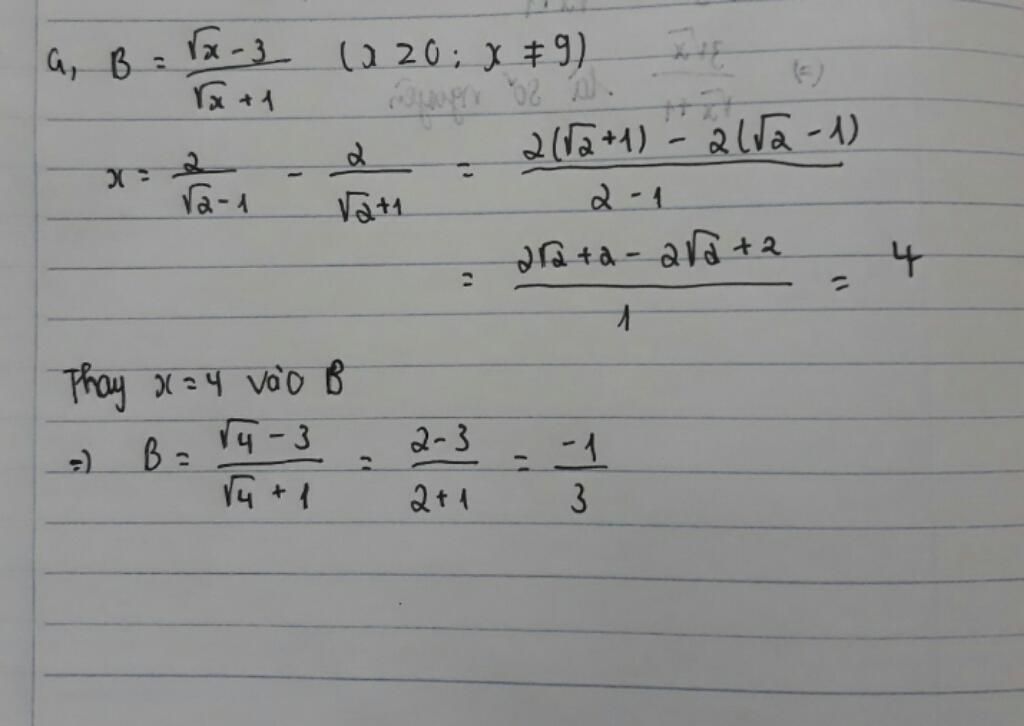 a, B = (√x - 3)/(√x + 1) (x ≥ 0; x ≠ 9)
x = 2/(√2 - 1) - 2/(√2 + 1) = (2(√2 + 1) - 2(√2 - 1))/(2 - 1)
= (2√2 + 2 - 2√2 + 2)/1 = 4
Thay x = 4 vào B
=) B = (√4 - 3)/(√4 + 1) = (2 - 3)/(2 + 1) = -1/3